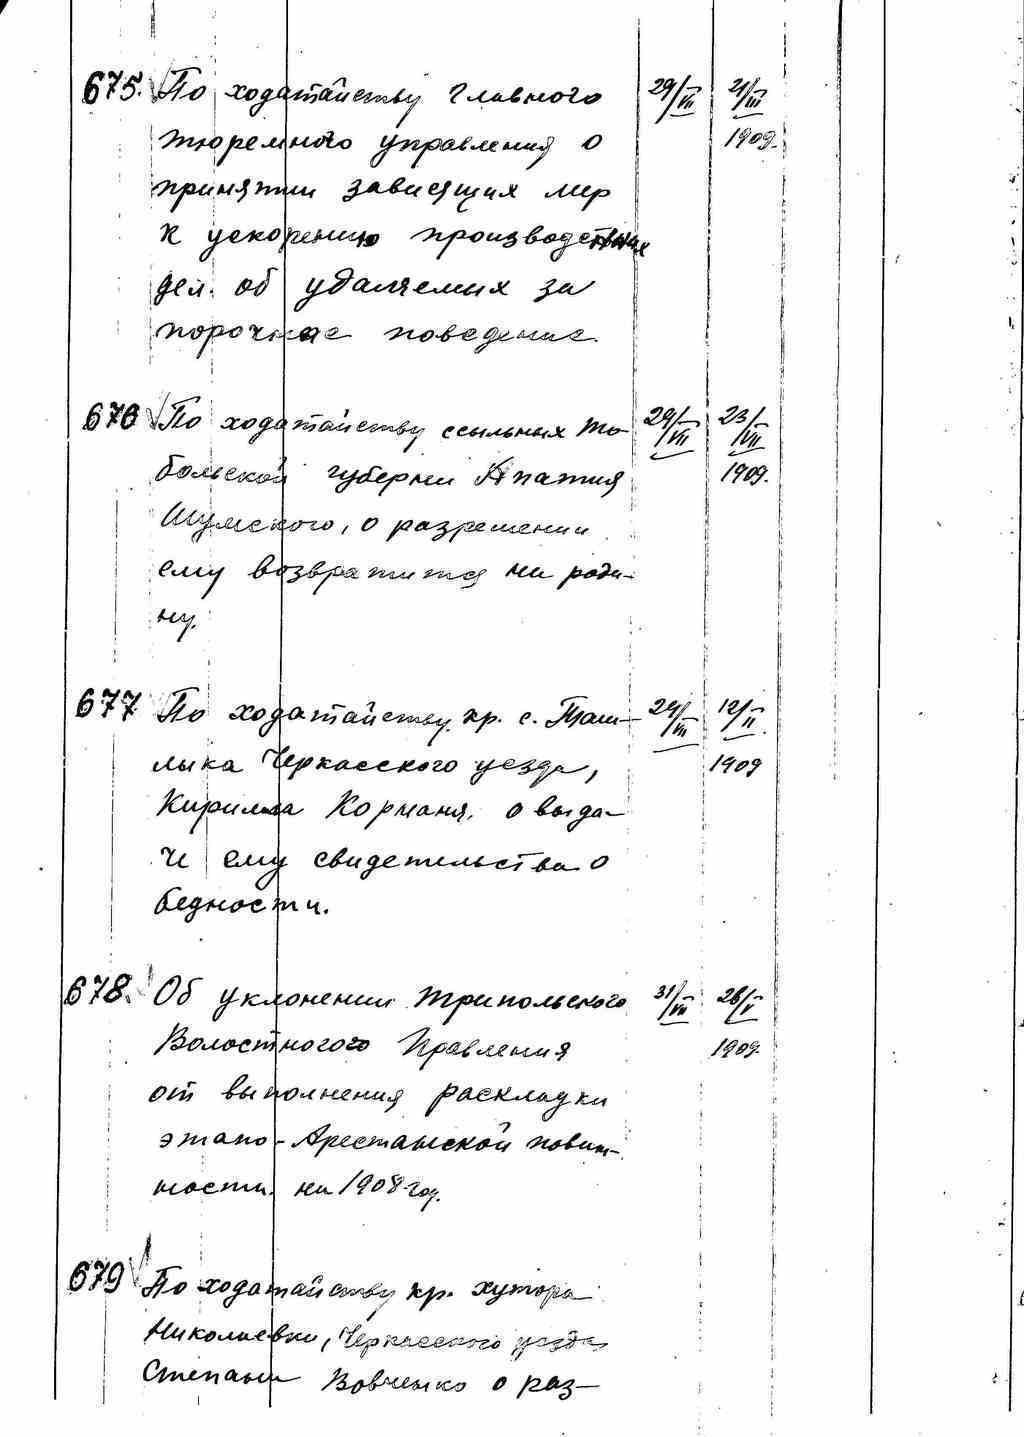 675. По ходатайству Главного 29/VII 21/III
тюремного управления о 1909.
принятии зависящих мер
к ускорению производственных
дел об удаляемих за
порочное поведение.
676 По ходатайству ссыльных То- 29/VII 23/VII
больской губернии Ипатия 1909.
Шумского, о разрешении
ему возвратится на роди-
ну.
677 По ходатайству кр. с. Таш- 29/VII 12/II
лыка Черкасского уезда, 1909
Кирилла Корманя, о выда-
че ему свидетельства о
бедности.
678. Об уклонении Трипольского 31/VII 26/V
Волостногого Правления 1909.
от выполнения раскладки
этапо-Арестанской повин-
ности на 1908 год.
679 По ходатайству кр. хутора
Николаевки, Черкасского уезда
Степана Вовченко о раз-